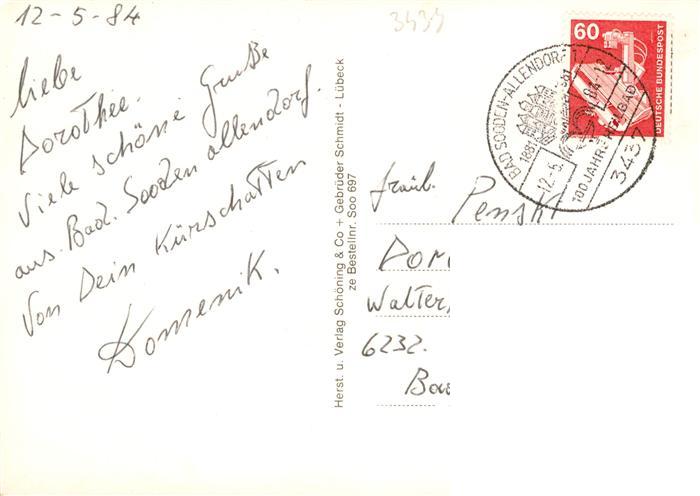 12-5-84
3437
liebe
Dorothee.
Viele schöne Grüße
aus. Bad. Sooden allendorf.
Von Dein Kürschatten
Domenik.
Herst. u. Verlag Schöning & Co + Gebrüder Schmidt - Lübeck
ze Bestellnr. Soo 697
60
DEUTSCHE BUNDESPOST
BAD SOODEN-ALLENDORF 1
1881
12.-5.84-12
100 JAHRE HEILBAD
3437
fräul. Pensk
Dor
Walter
6232.
Ba